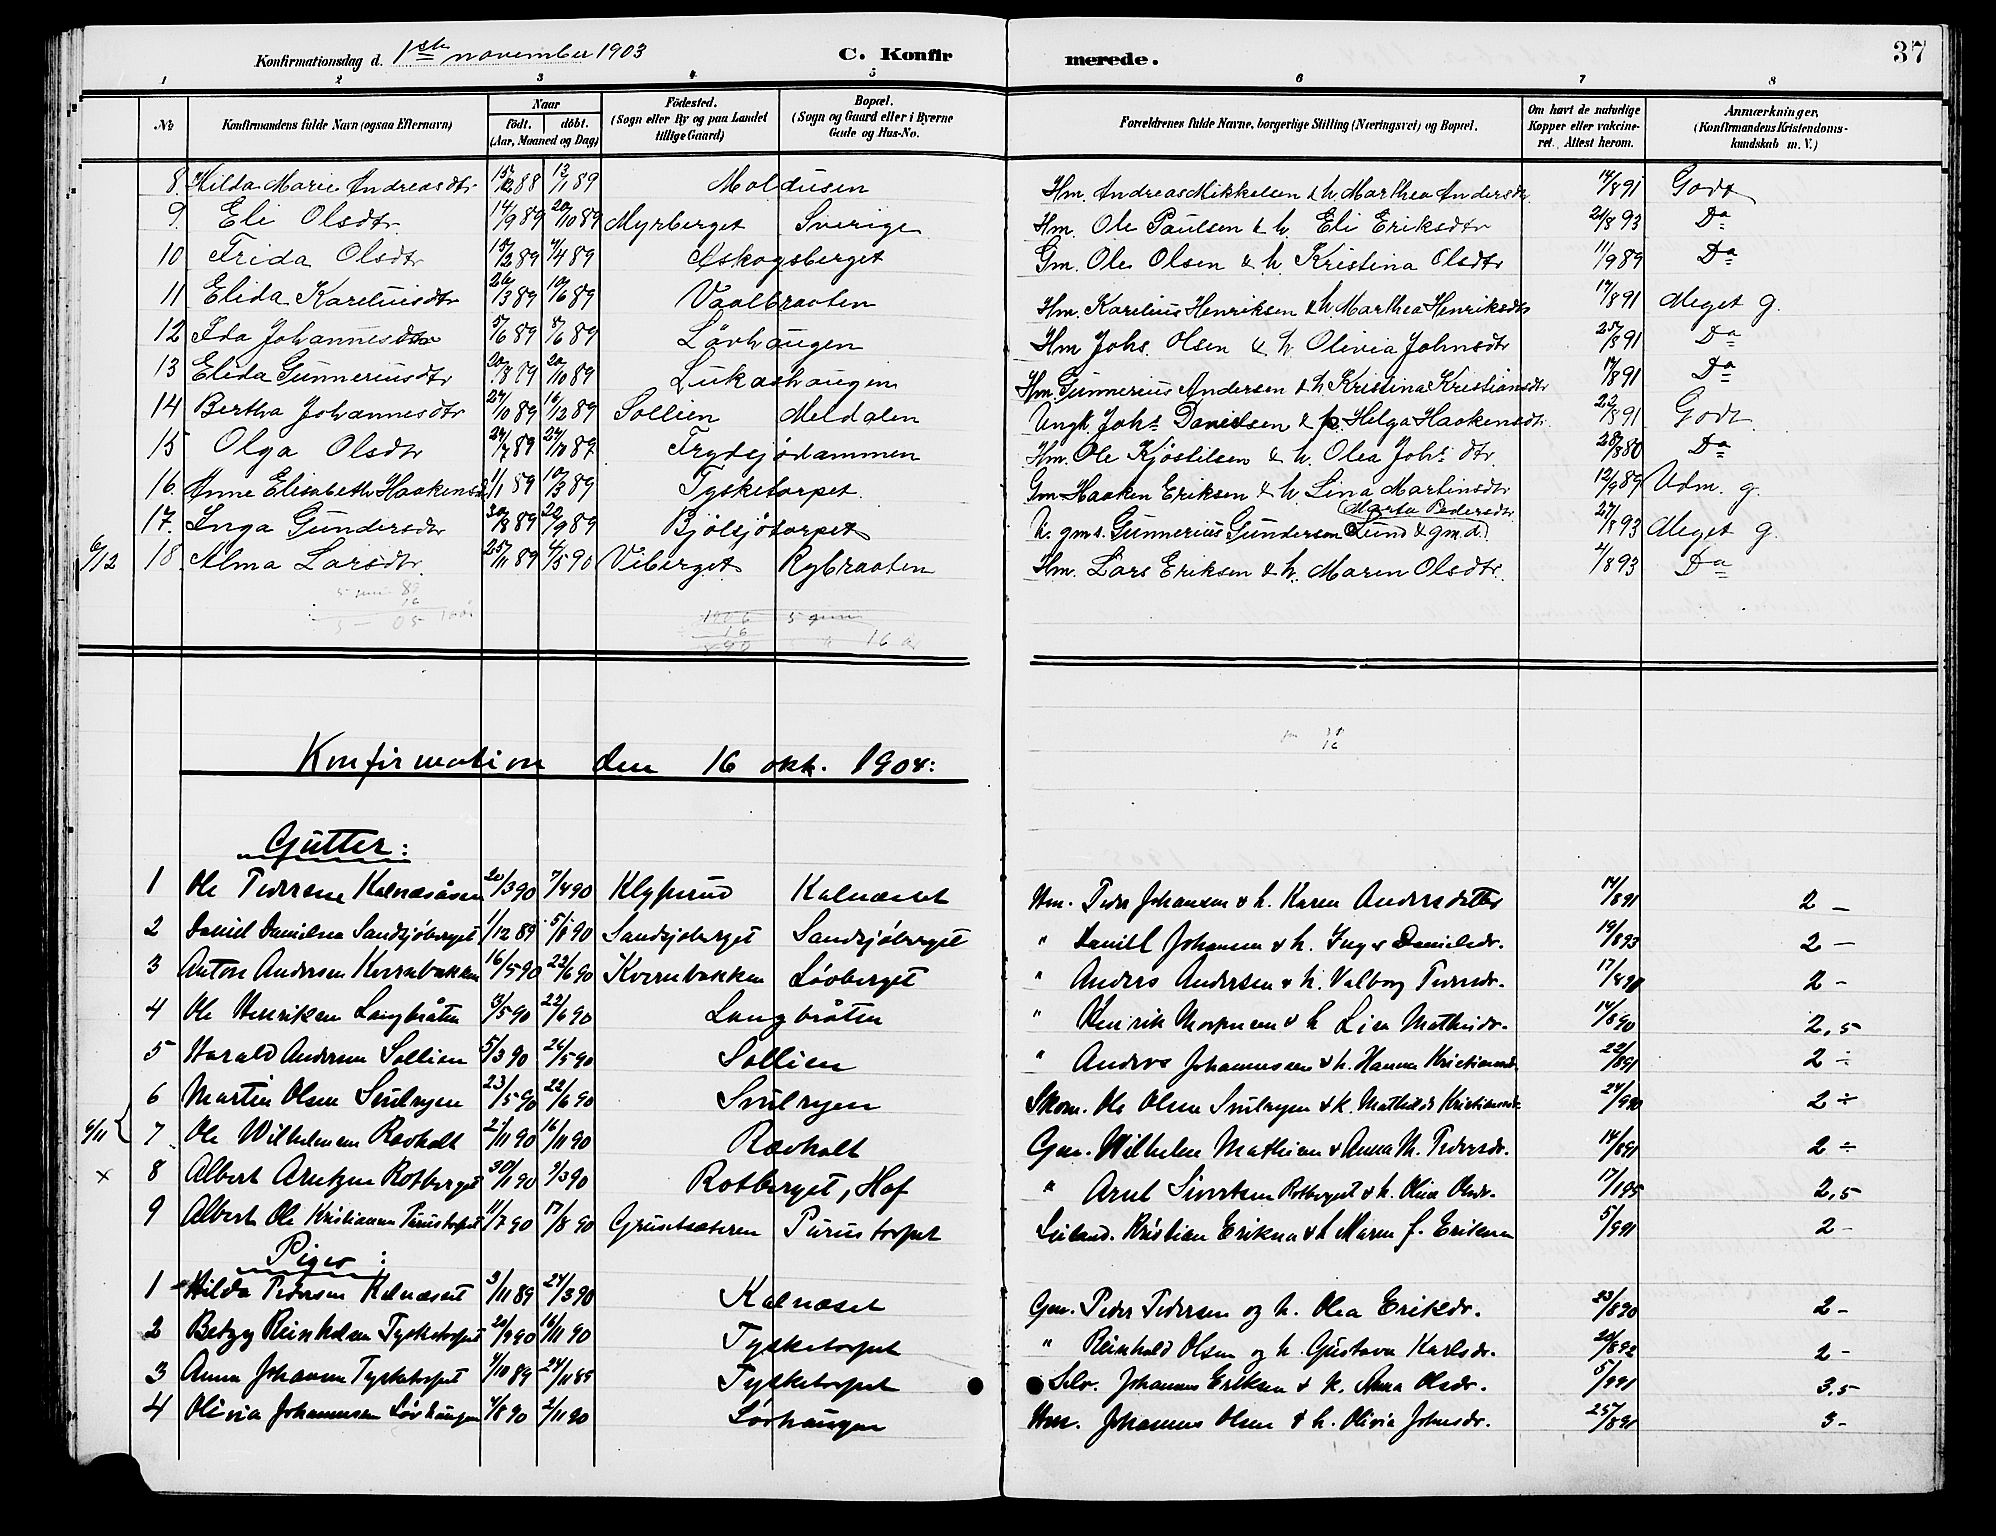 Konfirmationsdag d. 1ste november 1903 C. Konfirmerede. 37
1 2 3 4 5 6 7 8
No Konfirmandens fulde Navn (ogsaa Efternavn) Naar Født. døbt. (Aar, Maaned og Dag) Fødested. (Sogn eller By og paa Landet tillige Gaard) Bopæl. (Sogn og Gaard eller i Byerne Gade og Hus-No. Forældrenes fulde Navne, borgerlige Stilling (Næringsvei) og Bopæl. Om havt de naturlige Kopper eller vakcineret. Attest herom. Anmærkninger, (Konfirmandens Kristendomskundskab m. V.)
8. Hilda Marie Andreasdtr 15/12 88 13/1 89 Moldusen Hm. Andreas Mikkelsen & h. Marthea Andersdtr 14/8 91 Godt
9. Eli Olsdtr 14/9 89 20/10 89 Myrberget Sverige Hm. Ole Paulsen & h. Eli Eriksdtr 21/8 93 Do
10 Frida Olsdtr 15/2 89 4/4 89 Askogsberget Gm. Ole Olsen & h. Kristina Olsdtr 11/9 89 Do
11 Elida Kareliusdtr 26/3 89 10/6 89 Vaalbraaten Hm. Karelius Henriksen & h. Marthea Henriksdtr 17/8 91 Meget g.
12 Ida Johannesdtr 5/6 89 8/6 89 Løvhaugen Hm Johs. Olsen & h. Olivia Johnsdtr 25/8 91 Do
13 Elida Gunneriusdtr 20/8 89 20/10 89 Lukashaugen Hm. Gunnerius Andersen & h. Kristina Kristiansdtr 17/8 91 Do
14 Bertha Johannesdtr 24/10 89 16/12 89 Sollien Meldalen Ungk. Johs Danielsen & p. Helga Haakensdtr 22/8 91 Godt
15 Olga Olsdtr 24/7 89 24/10 89 Frydsjødammen Hm. Ole Kjøstilsen & h. Olea Johs dtr. 28/8 80 Do
16. Anne Elisabeth Haakensd 1/1 89 10/3 89 Tysketorpet. Gm Haaken Eriksen & h. Lina Martinsdtr 12/9 89 Udm. g.
17. Inga Gundersdtr 30/8 89 22/9 89 Bjølsjøtorpet h. gms. Gunnerius Gundersen Lund & gm.d. Marta Pedersdtr 27/8 93 Meget g.
6/12 18. Alma Larsdtr. 25/11 89 4/5 90 Viberget Rybraaten Hm. Lars Eriksen & h. Maren Olsdtr. 4/8 93 Do
Konfirmation den 16 okt. 1904:
Gutter:
1 Ole Pedersen Kalnæsåsen 20/3 90 7/4 90 Klypsrud Kalnæset Hm. Peder Johansen & h. Karen Andersdatter 14/8 91 2 –
2 Daniel Danielsen Sandsjøberget 1/12 89 5/8 90 Sandsjøberget Sandsjøberget " Daniel Johansen & h. Inger Danielsdr. 19/8 93 2 –
3 Anton Andersen Kvernbakken 16/5 90 22/6 90 Kvernbakken Løvberget " Anders Andersen & h. Valborg Pedersdr. 17/8 90 2 -
4 Ole Henriksen Langbråten 3/5 90 22/6 90 Langbråten " Henrik Mortensen & h Lisa Mathisdr. 14/8 90 2,5
5 Harald Andersen Sollien 5/3 90 26/5 90 Sollien " Anders Johannessen & h. Hanna Kristiansd. 22/8 91 2 ÷
6 Martin Olsen Snulryen 23/5 90 22/6 90 Snulryen Skom. Ole Olsen Snulryen & k. Mathilde Kristiansdr. 24/9 90 2 ÷
4/11 { 7 Ole Wilhelmsen Rævholt 2/11 90 16/11 90 Rævholt Gm. Wilhelm Mathisen & Anna M. Pedersdr. 14/8 91 2 ÷
x 8 Albert Arntzen Rotberget 30/1 90 9/3 90 Rotberget, Hof " Arnt Sivertsen Rotberget & h. Olise Olsdr. 17/1 95 2,5
9 Albert Ole Kristiansen Purustorpet 11/7 90 17/8 90 Gruntsæteren Purustorpet Leiland. Kristian Eriksen & h Maren J. Eriksen 5/9 91 2 -
Piger:
1 Hilda Pedersen Kalnæset 3/11 89 24/3 90 Kalnæset Gm. Peder Pedersen og h. Olea Eriksdr. 23/8 90 2 -
2 Betzy Reinholdsen Tysketorpet 20/9 90 16/11 90 Tysketorpet " Reinhold Olsen og h. Gustava Karlsdr. 22/8 92 2 -
3 Anna Johansen Tysketorpet 4/10 89 24/11 89 Tysketorpet Selv. Johannes Eriksen & k. Anna Olsdr. 5/9 91 3,5
4 Olivia Johannessen Løvhaugen 4/8 90 2/11 90 Løvhaugen Hm. Johannes Olsen & h. Olivia Johnsdr. 25/8 91 3 -